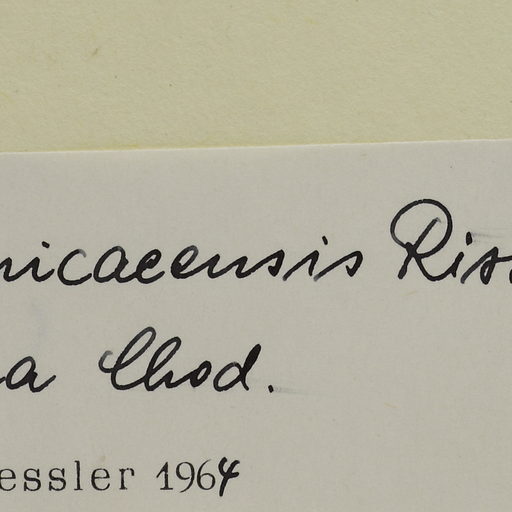 nicaeensis Riss
a Chod.
essler 1964